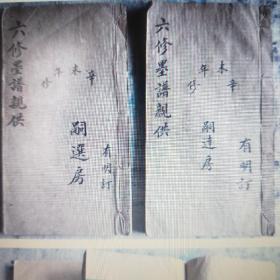 六修墨譜親供
辛未年修
嗣選房
有明訂
六修墨譜親供
辛未年修
嗣達房
有明訂